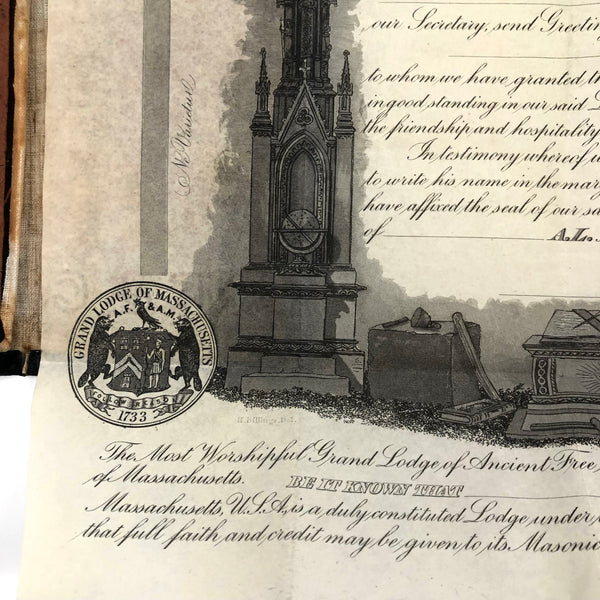 our Secretary, send Greeting
to whom we have granted th
in good standing in our said L
the friendship and hospitality
In testimony whereof w
to write his name in the mar
have affixed the seal of our sa
of A.L.
GRAND LODGE OF MASSACHUSETTS
A.F. & A.M.
FOLLOW REASON
1733
The Most Worshipful Grand Lodge of Ancient Free
of Massachusetts. BE IT KNOWN THAT
Massachusetts, U.S.A., is a duly constituted Lodge, under
that full faith and credit may be given to its Masonic